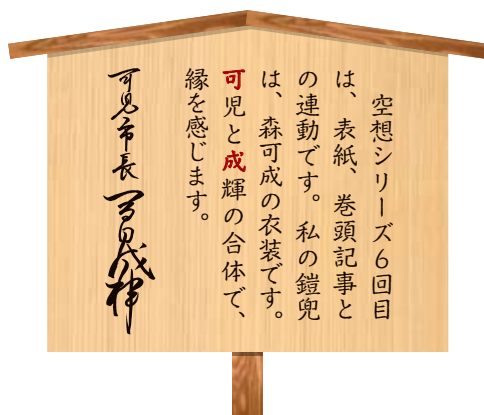 空想シリーズ６回目
は、表紙、巻頭記事と
の連動です。私の鎧兜
は、森可成の衣装です。
可児と成輝の合体で、
縁を感じます。
可児市長 冨田成輝